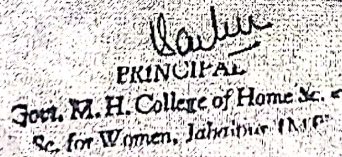 PRINCIPAL
Govt. M. H. College of Home Sc. &
Sc. for Women, Jabalpur (M.P.)